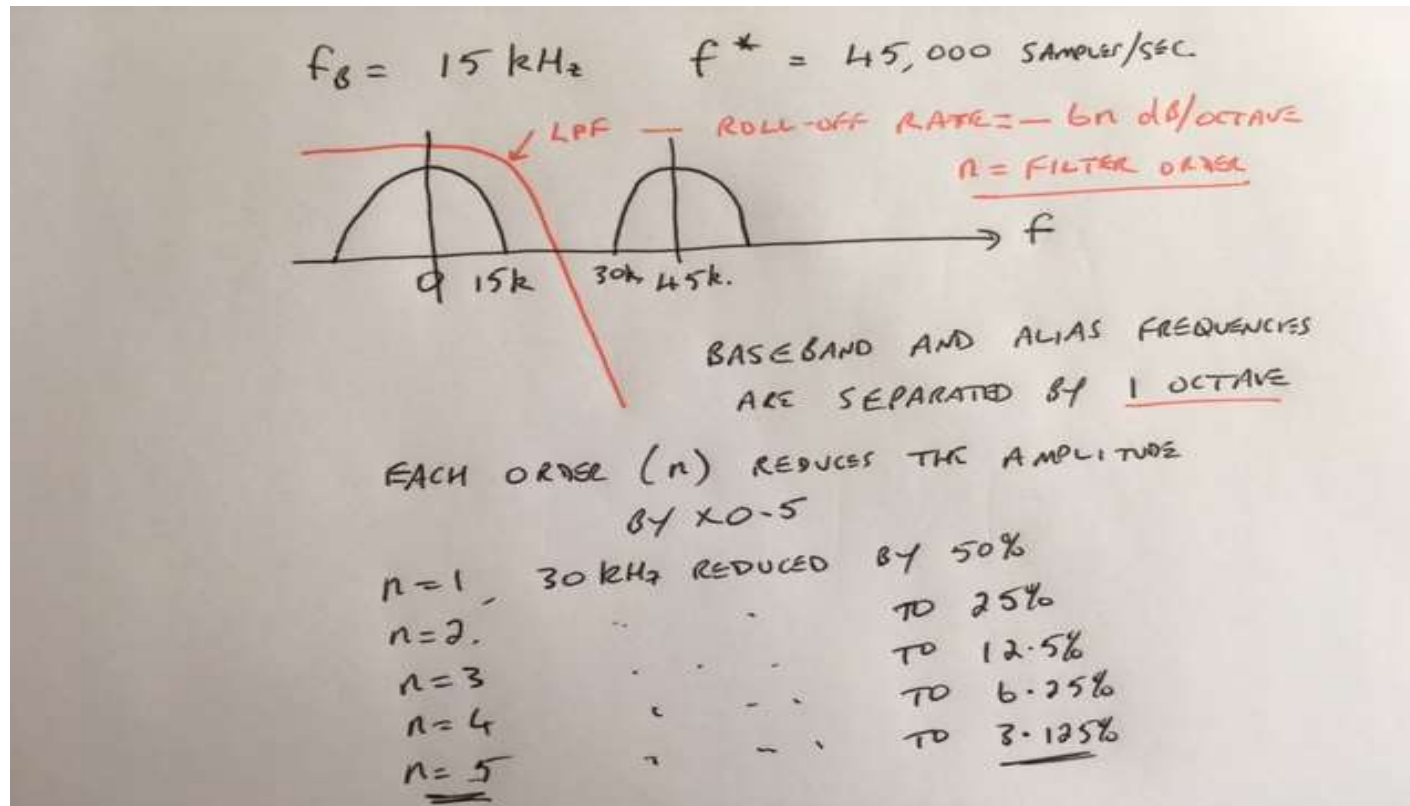 fB = 15 kHz f* = 45,000 SAMPLES/SEC.
LPF — ROLL-OFF RATE = - 6n dB/OCTAVE
n = FILTER ORDER
f
0 15k 30k 45k.
BASEBAND AND ALIAS FREQUENCIES
ARE SEPARATED BY 1 OCTAVE
EACH ORDER (n) REDUCES THE AMPLITUDE
BY X0.5
n=1, 30 kHz REDUCED BY 50%
n=2. " " TO 25%
n=3 " " " TO 12.5%
n=4 " " " TO 6.25%
n=5 " " " TO 3.125%